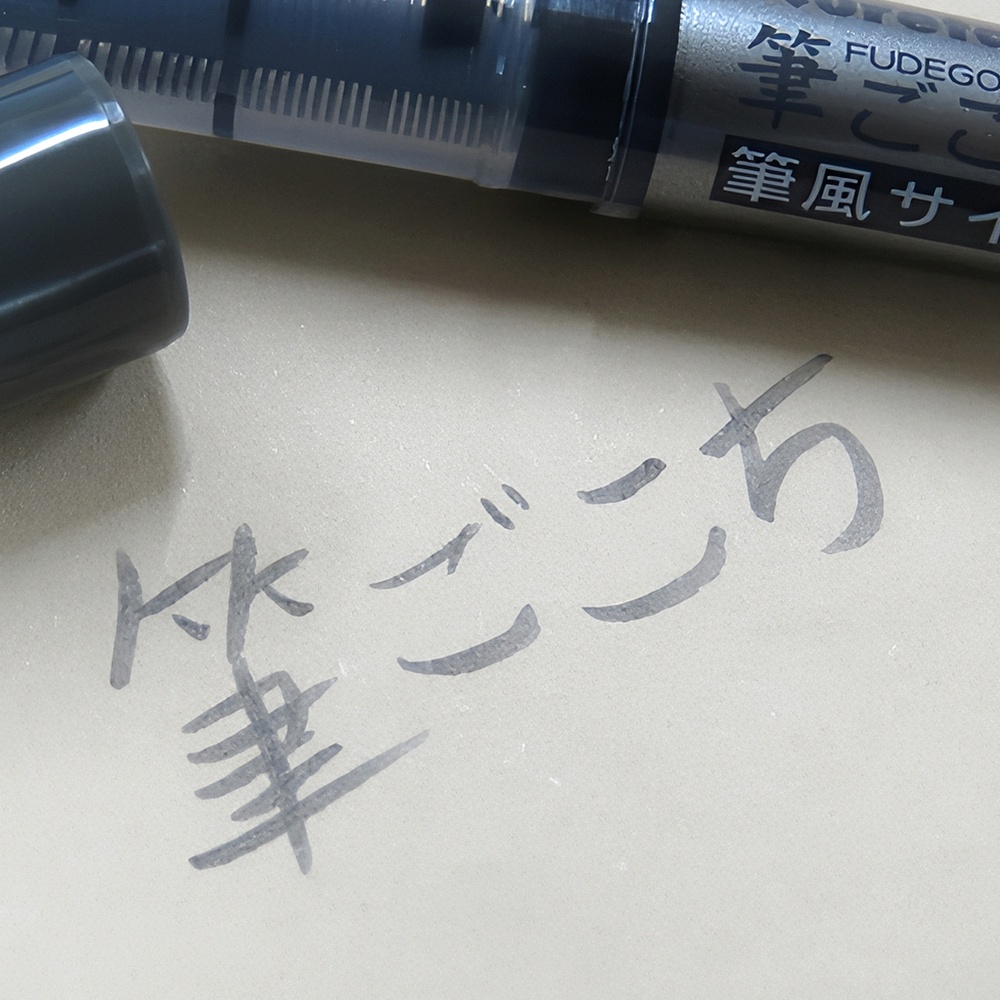 筆 FUDEGO
ごこ
筆風サイ
筆ごこち